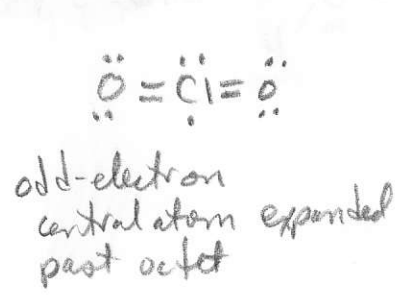 Ö = Cl = Ö
odd-electron
central atom expanded
past octet